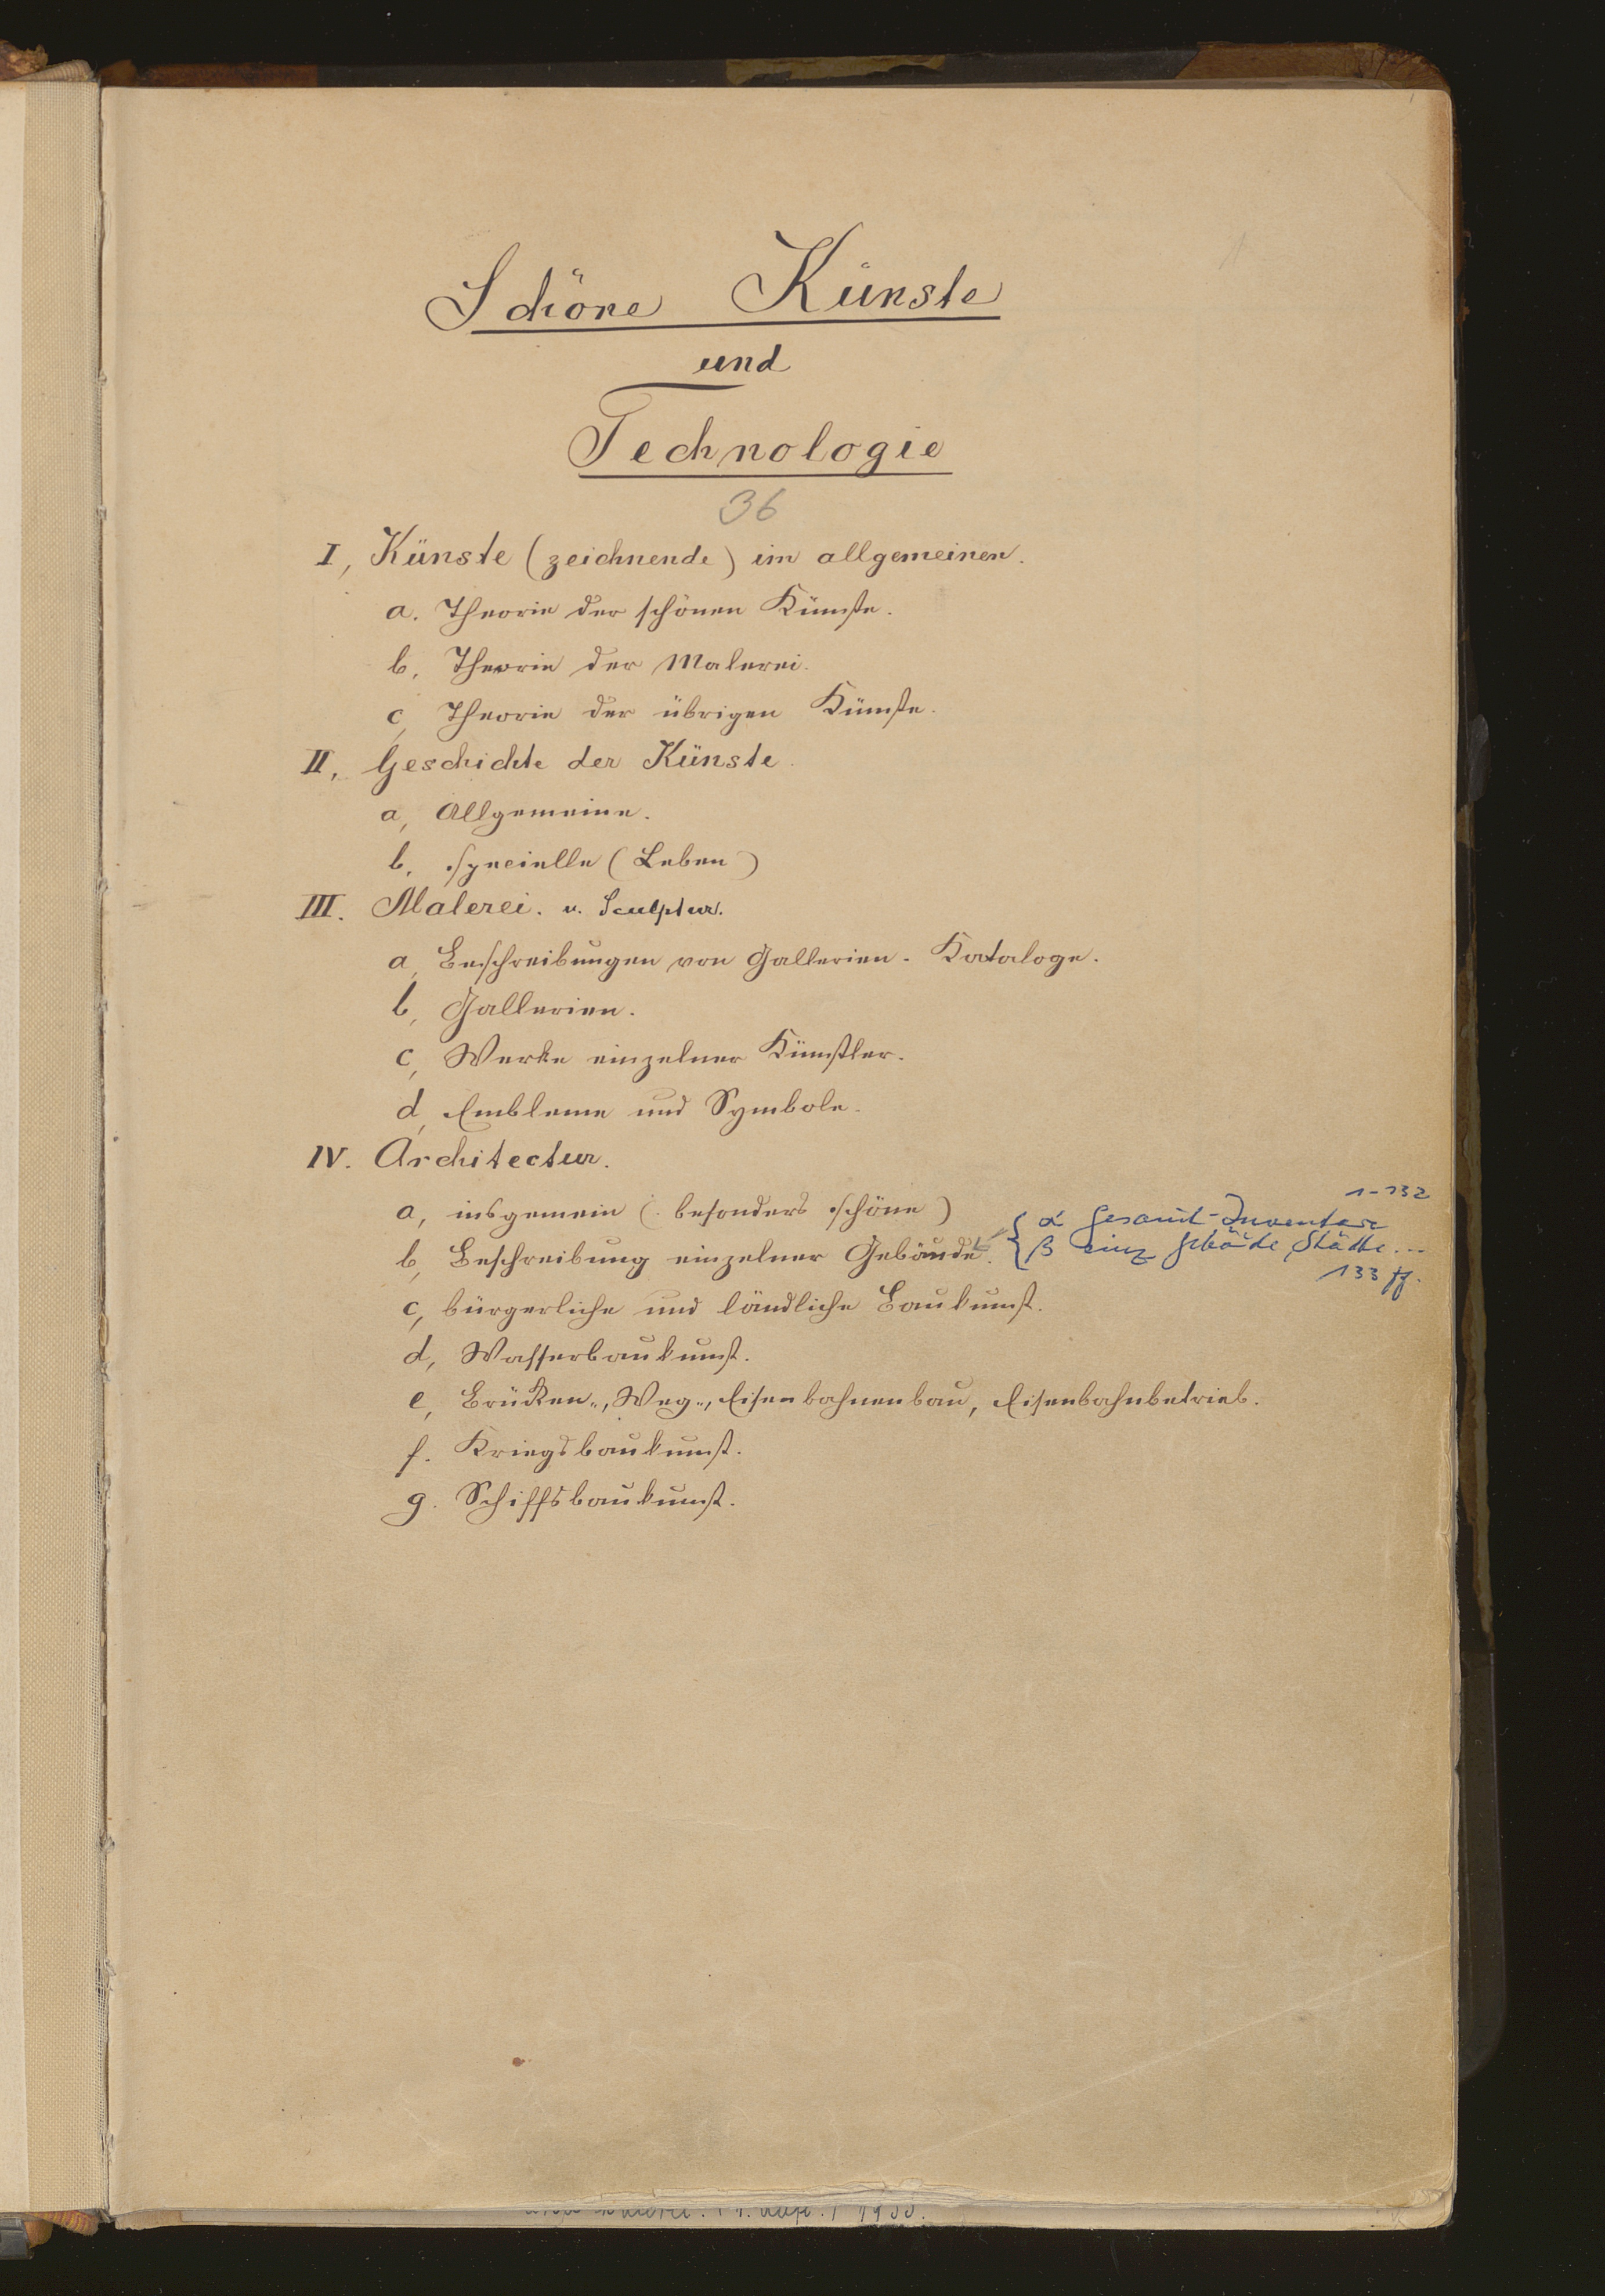 Schöne Künste
und
Technologie
36
I, Künste (zeichnende) im allgemeinen.
a. Theorie der schönen Künste.
b, Theorie der Malerei.
c, Theorie der übrigen Künste.
II, Geschichte der Künste.
a, Allgemeine.
b, specielle (Leben)
III. Malerei. u. Sculptur.
a, Beschreibungen von Gallerien. Kataloge.
b, Gallerien.
c, Werke einzelner Künstler.
d, Embleme und Symbole.
IV. Architectur.
a, insgemein (besonders schöne)
b, Beschreibung einzelner Gebäude.
1-132
α Gesamt-Inventare
β einz Gebäude, Städte...
133 ff.
c, bürgerliche und ländliche Baukunst.
d, Wasserbaukunst.
e, Brücken-, Weg-, Eisenbahnenbau, Eisenbahnbetrieb.
f. Kriegsbaukunst.
g. Schiffsbaukunst.